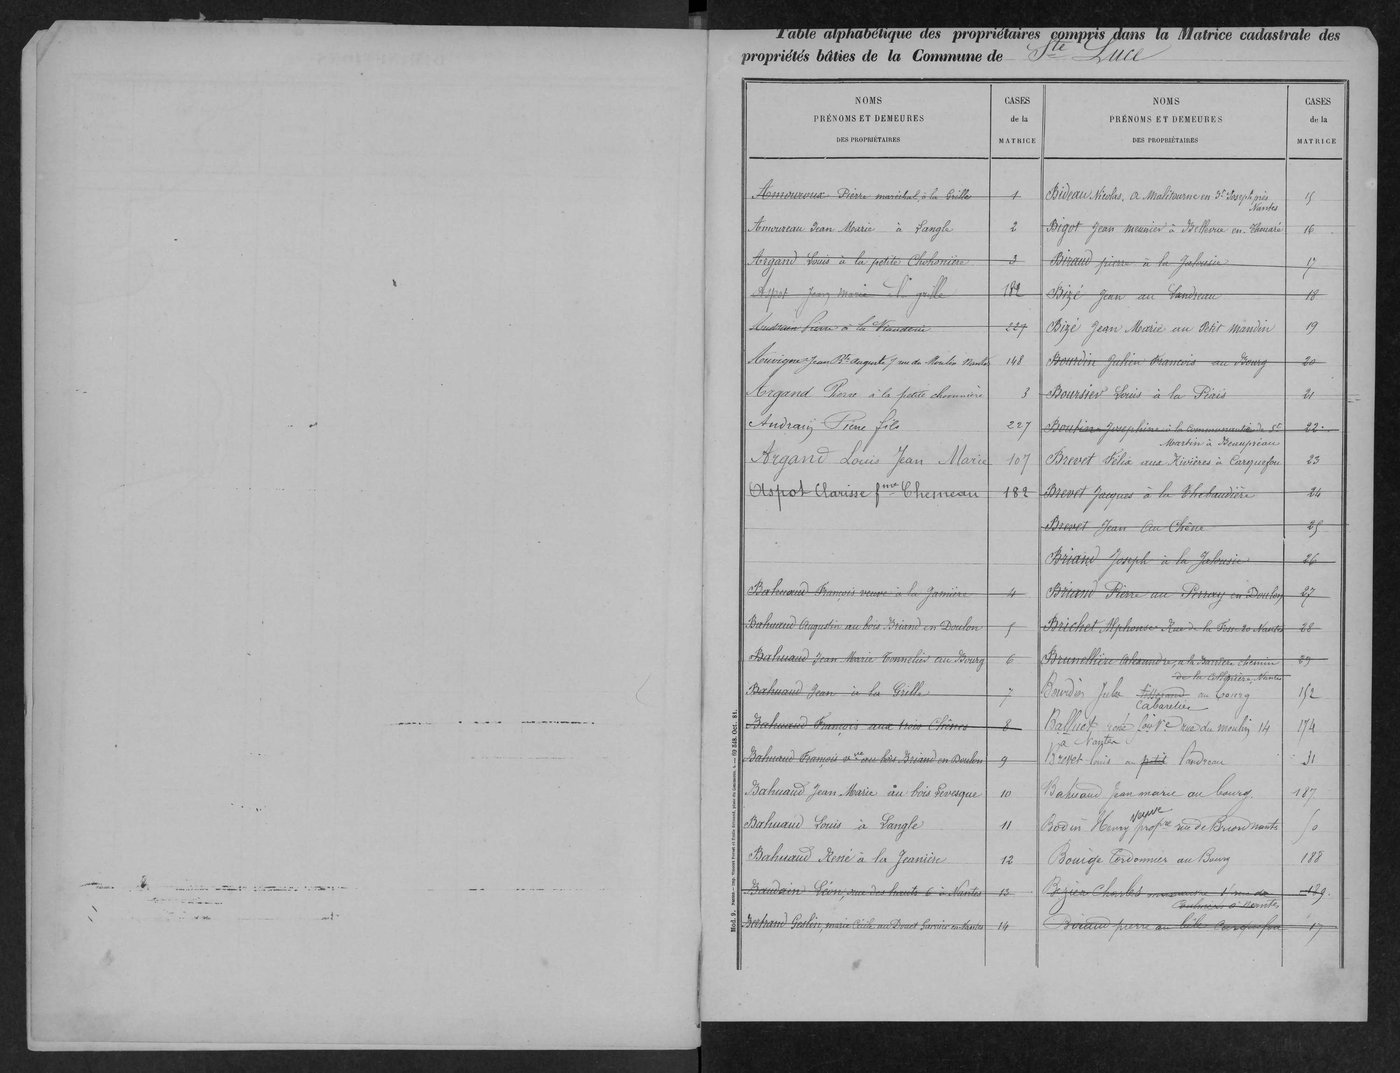 Table alphabétique des propriétaires compris dans la Matrice cadastrale des
propriétés bâties de la Commune de Ste Luce
NOMS
PRÉNOMS ET DEMEURES
DES PROPRIÉTAIRES
CASES
de la
MATRICE
Amouroux Pierre maréchal, à la Grille 1
Amoureau Jean Marie à Langle 2
Argand Louis à la petite Chohonière 3
Aspot Jean Marie la grille 182
Audrain Pierre à la 227
Auvigne Jean Bte Auguste 7 rue du Moulin Nantes 148
Argand Pierre à la petite chononnière 3
Audrain Pierre fils 227
Argand Louis Jean Marie 107
Aspot Clarisse fme Chemeau 182
Bahuaud François veuve à la Janière 4
Bahuaud Augustin au bois Briand en Doulon 5
Bahuaud Jean Marie Tonnelier au Bourg 6
Bahuaud Jean à la Grille 7
Bahuaud François aux trois Chênes 8
Bahuaud François vve au bois Briand en Doulon 9
Bahuaud Jean Marie au bois Levesque 10
Bahuaud Louis à Langle 11
Bahuaud René à la Jeanière 12
Baudouin Léon, rue des hauts 6 à Nantes 13
Bertrand Geslin, marie Cécile au Douet Garnier en Nantes 14
NOMS
PRÉNOMS ET DEMEURES
DES PROPRIÉTAIRES
CASES
de la
MATRICE
Bideau Nicolas, à Malitourne en St Joseph, près 15
Nantes
Bigot Jean meunier à Bellevue en Thouaré 16
Biraud pierre à la Jalousie 17
Bizé Jean au Landreau 18
Bizé Jean Marie au Petit Mandin 19
Bourdin Julien François au Bourg 20
Boursier Louis à la Piais 21
Boutin Josephine à la Communauté de St 22
Martin à Beaupréau
Brevet Félix aux Rivières à Carquefou 23
Brevet Jacques à la Thebaudière 24
Brevet Jean Au Chêne 25
Briand Joseph à la Jalousie 26
Briand Pierre au Perray en Doulon 27
Brichet Alphonse Rue de la Fosse 20 Nantes 28
Brunellière Alexandre, à la Barrière chemin 29
de la Nantes
Bourdin Jules Tisserand au bourg 152
Cabaretier
Balluet René Vve rue du moulin 14 174
à Nantes
Brevet louis au petit Landreau 31
Bahuaud Jean marie au bourg 187
Veuve
Bodin Henry propre rue de Briord nantes 50
Bouige Cordonnier au Bourg 188
Bezier Charles rue de 189
Nantes
Biraud pierre au Carquefou 17
Mod. 9. NANTES.
69 348. Oct. 81.